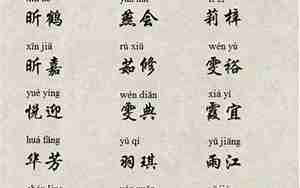 昕鹤 燕会 莉梓
xīn jiā rú xiū wén yù
昕嘉 茹修 雯裕
yuè yíng wén diǎn xiá yí
悦迎 雯典 霞宜
huá fāng yǔ qí yǔ jiāng
华芳 羽琪 雨江